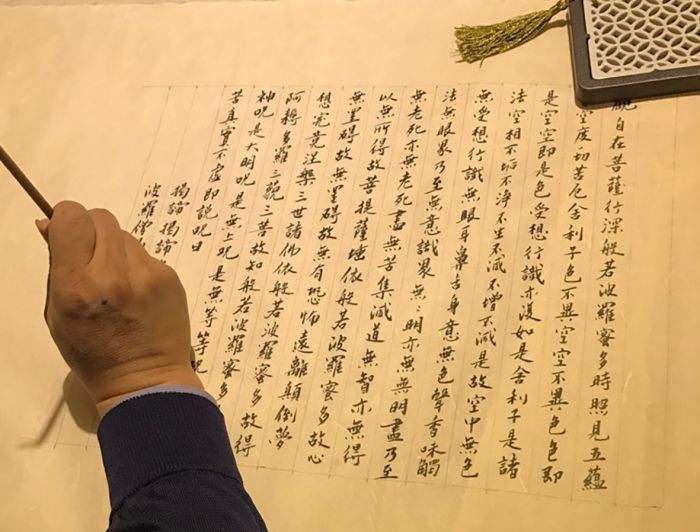 自在菩薩行深般若波羅蜜多時照見五蘊
空度一切苦厄舍利子色不異空空不異色色即
是空空即是色受想行識亦復如是舍利子是諸
法空相不垢不淨不生不滅不增不減是故空中無色
無受想行識無眼耳鼻舌身意無色聲香味觸
法無眼界乃至無意識界無〻明亦無無明盡乃至
無老死亦無老死盡無苦集滅道無智亦無得
以無所得故菩提薩埵依般若波羅蜜多故心
無罣礙故無罣礙故無有恐怖遠離顛倒夢
想究竟涅槃三世諸佛依般若波羅蜜多故得
阿耨多羅三藐三菩故知般若波羅蜜多
神呪是大明呪是無上呪是無等等呪
苦真實不虛即說呪曰
揭諦揭諦
波羅僧